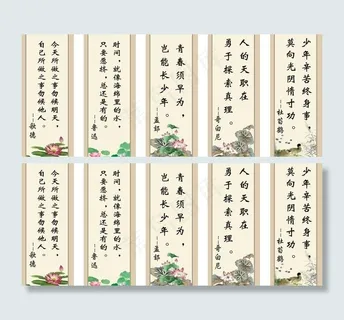 少年辛苦终身事
莫向光阴惰寸功
—杜荀鹤
人的天职在
勇于探索真理。
—哥白尼
青春须早为，
岂能长少年。
—孟郊
时间，就像海绵里的水，
只要愿挤，总还是有的。
—鲁迅
今天所做之事勿候明天，
自己所做之事勿候他人。
—歌德
少年辛苦终身事
莫向光阴惰寸功
—杜荀鹤
人的天职在
勇于探索真理。
—哥白尼
青春须早为，
岂能长少年。
—孟郊
时间，就像海绵里的水，
只要愿挤，总还是有的。
—鲁迅
今天所做之事勿候明天，
自己所做之事勿候他人。
—歌德